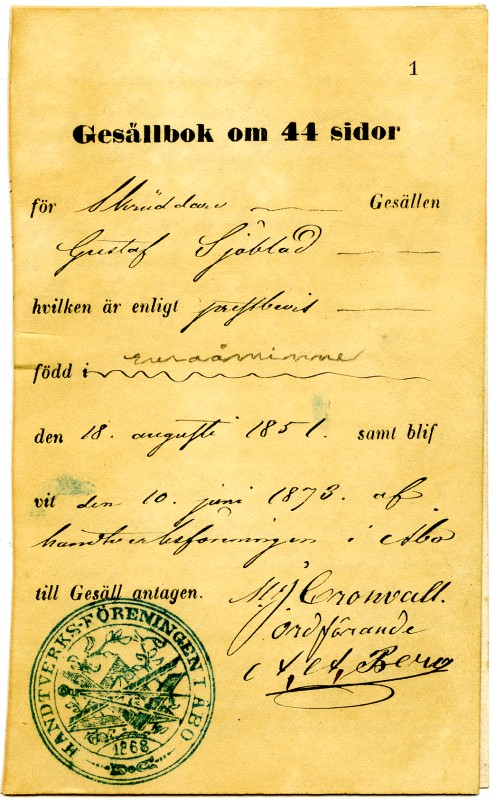 1
Gesällbok om 44 sidor
för Skräddare Gesällen
Gustaf Sjöblad
hvilken är enligt prestbevis
född i
den 18. augusti 1851. samt blif
vit den 10. juni 1873. af
handtverksföreningen i Åbo
till Gesäll antagen.
M J Cronvall.
ordförande
A, A, Berg
HANDTVERKS-FÖRENINGEN I ÅBO
1868